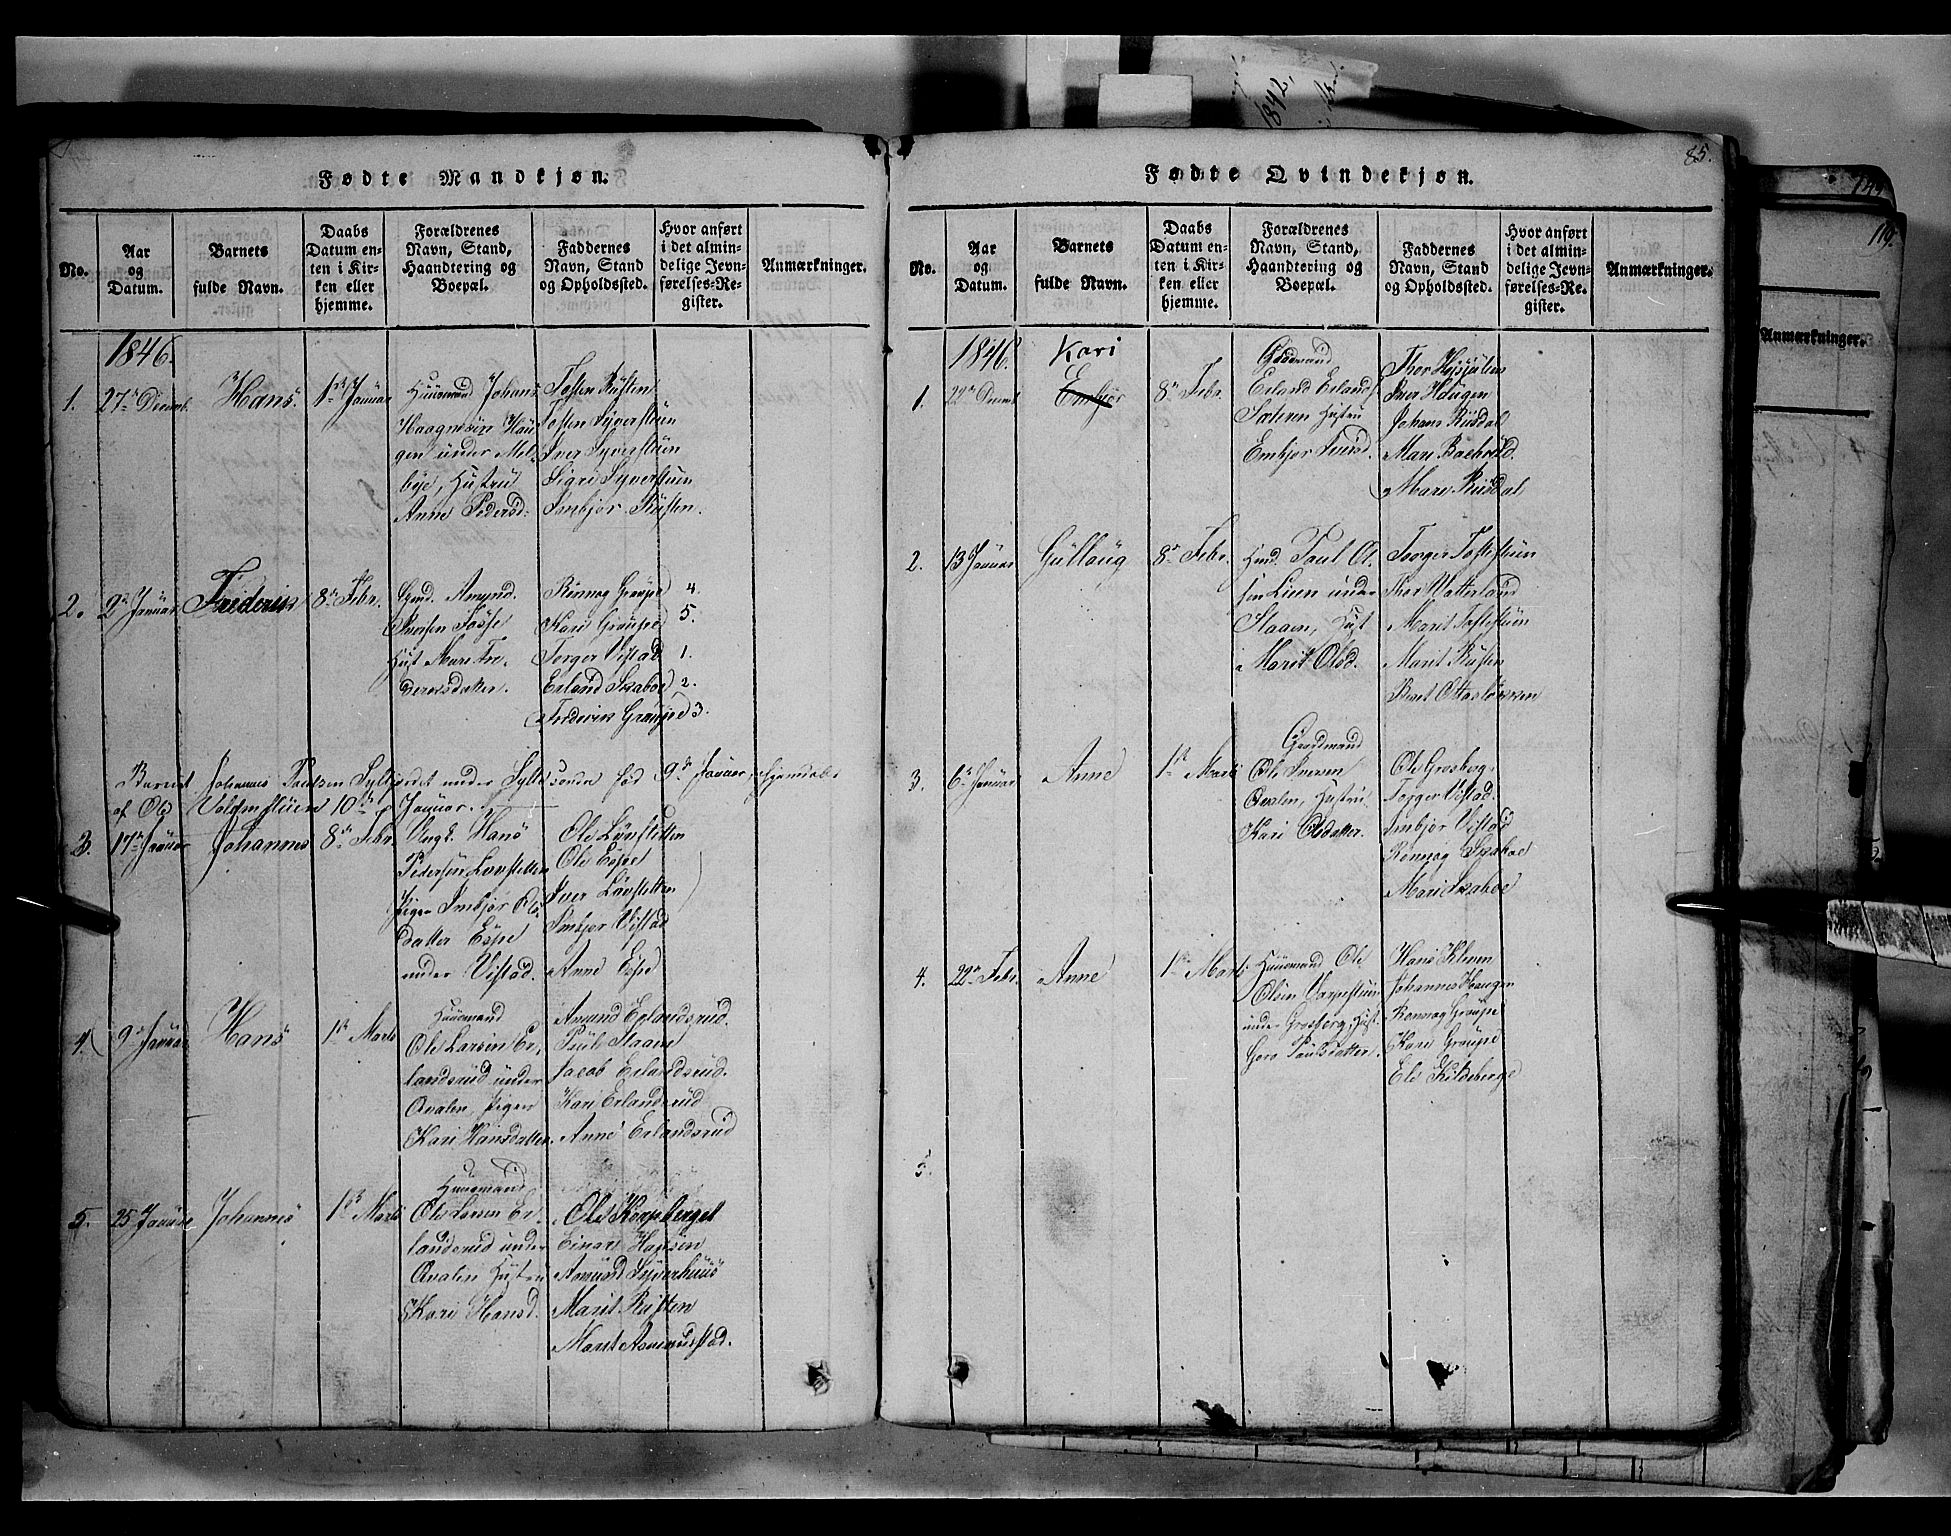 Fødte Mandkjøn.
No.
Aar og Datum.
Barnets fulde Navn.
Daabs Datum enten i Kirken eller hjemme.
Forældrenes Navn, Stand, Haandtering og Boepæl.
Faddernes Navn, Stand og Opholdssted.
Hvor anført i det almindelige Jevnførelses-Register.
Anmærkninger.
1846.
1. 27de Decemb. Hans. 1ste Januar
Huusmand Johans
Haagensen Hau
gen under Mel
bye, Hustru
Anne Pedersd:
Tosten Rusten
Tosten Syverstuen
Iver Syverstuen
Sigri Syverstuen
Imbjør Rusten.
2. 2den Januar Frederik 8de Febr.
Gmd. Amund
Iversen Fosse
Hust Mari Fre
deriksdatter.
Rønnog Graupe 4.
Kari Graupe 5.
Torger Vistad 1.
Erland Skaboe 2.
Frederik Graupe 3.
Barnet Johannes Paulsen under fød 9de Januar, hjemdøbt
af Ole Voldenstuen 10de Januar.
3. 17de Januar Johannes 8de Febr.
Ungk. Hans
Pedersen Løvstetten
Pigen Imbjør Ols
datter Espe
under Vistad.
Ole Løvstetten
Ole Espe
Iver Løvstetten
Imbjør Vistad
Anne Espe
4. 9de Januar Hans 1ste Marts
Huusmand
Ole Larsen Er
landsrud under
Qvalen, Pigen
Kari Hansdatter.
Amund Erlandsrud.
Poul Staane
Jacob Erlandsrud.
Kari Erlandsrud
Anne Erlandsrud
5. 25 Januar Johannes 1ste Marts
Huusmand
Ole Larsen Er
landsrud under
Qvalen Hustru
Kari Hansd.
Ole Korpberget
Einar Hansen
Amund Syverhuus
Marit Rusten
Marit Asmundstad.
85.
Fødte Qvindekjøn.
No.
Aar og Datum.
Barnets fulde Navn.
Daabs Datum enten i Kirken eller hjemme.
Forældrenes Navn, Stand, Haandtering og Boepæl.
Faddernes Navn, Stand og Opholdssted.
Hvor anført i det almindelige Jevnførelses-Register.
Anmærkninger.
1846. Kari
1. 22de Decemb Embjør 8de Febr.
Gaardmand
Erland Erlands
Sæteren Hustru
Embjør Iversd.
Iver Haugen
Johans Rusdal
Mari Bækvold.
Mari Rusdal
2. 13 Januar Gullaug 8de Febr.
Hmd. Paul Ol
sen Lien under
Staaen, Hust
Marit Olsd.
Torger Toftestuen
Thor Vatterland
Marit Toftestuen
Marit Rusten
Beret Ottasløkken
3. 6te Januar Anne 1ste Marts
Gaardmand
Ole Iversen
Qvalen, Hustru
Kari Olsdatter.
Ole Grosberg
Torger Vistad.
Imbjør Vistad
Rønnog Skaboe
Mari Skaboe
4. 22de Febr. Anne 1ste Marts
Huusmand Ole
Olsen Varpestuen
under Grosberg, Hust.
Goro Paulsdatter.
Hans Kleven
Johannes Haugen
Rønnog Graupe
Kari Graupe
Ele Kildeberge
5.
1842.
119.
Anmærkninger.